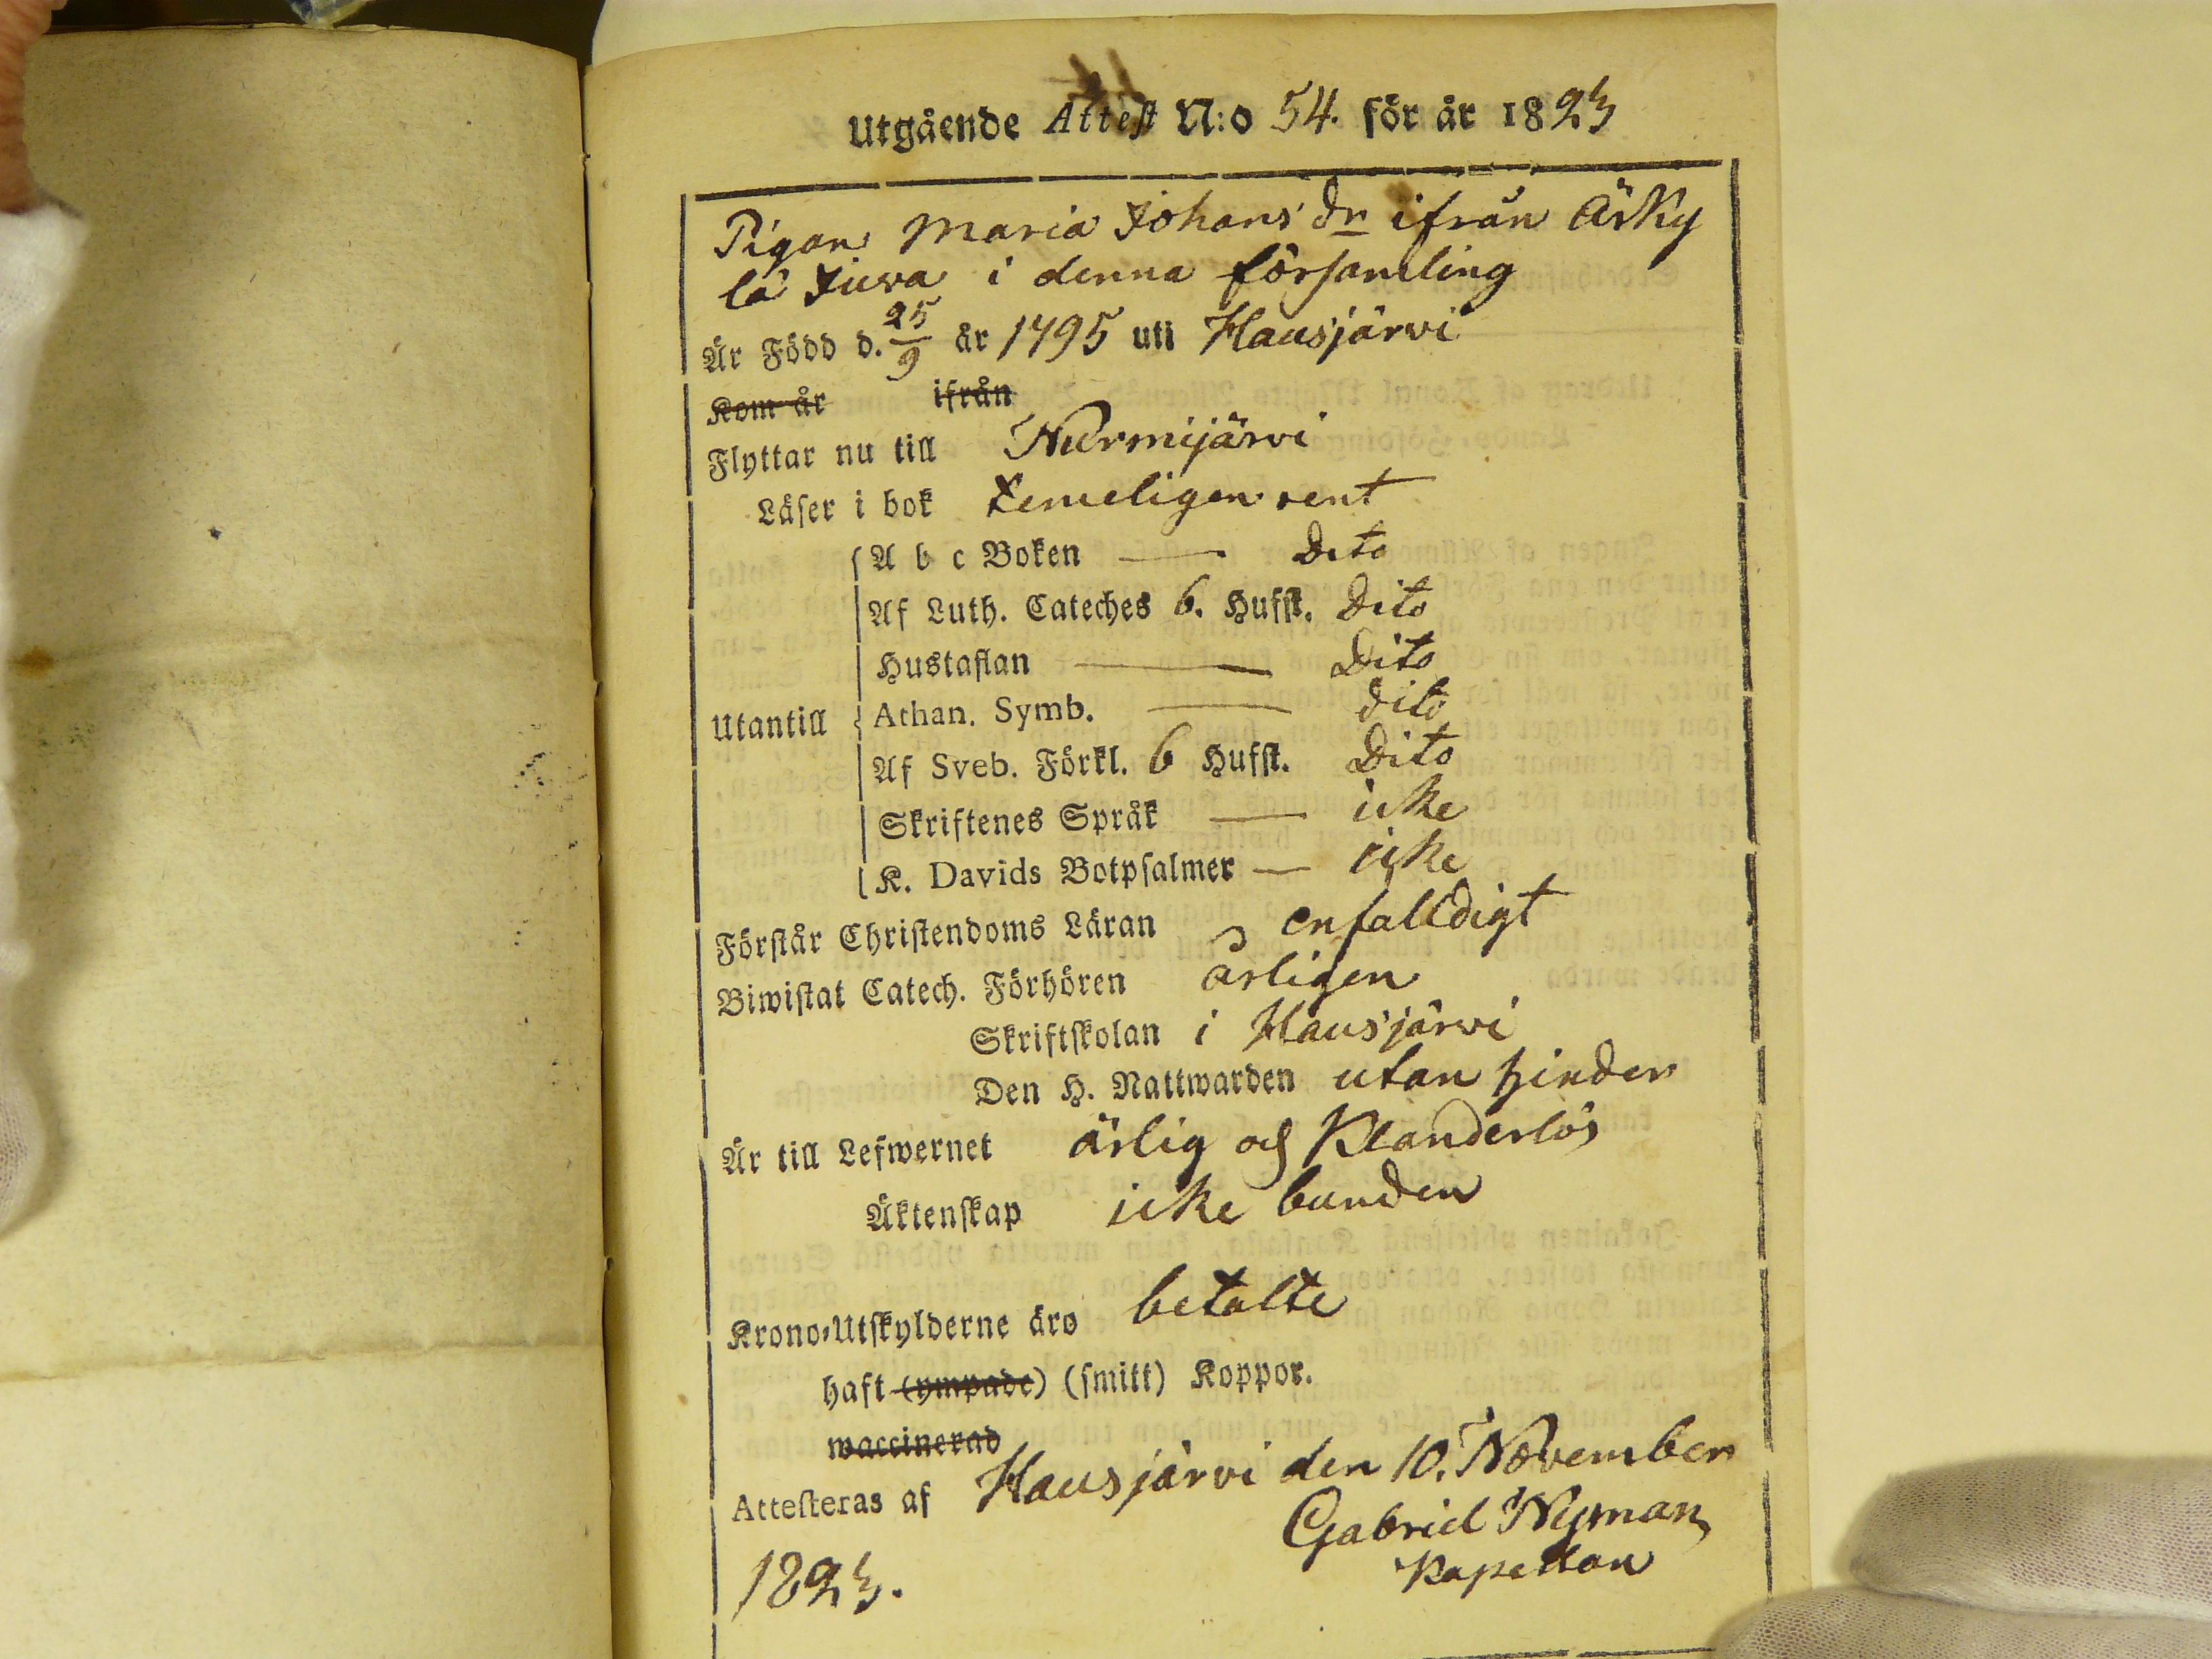 Utgående Attest N:o 54. för år 1823
Pigan Maria Johans dr ifrån Ärky
lä Juva i denna församling
Är Född d. 25/9 år 1795 uti Hausjärvi
Kom år ifrån
Flyttar nu till Nurmijärvi
Läser i bok temeligen rent
A b c Boken — Dito
Af Luth. Cateches 6. Hufst. Dito
Hustaflan — Dito
Utantill Athan. Symb. — dito
Af Sveb. Förkl. 6 Hufst. Dito
Skriftenes Språk — icke
K. Davids Botpsalmer — icke
Förstår Christendoms Läran enfalldigt
Biwistat Catech. Förhören årligen
Skriftskolan i Hausjärvi
Den H. Nattwarden utan hinder
Är till Lefwernet ärlig och Klanderlös
Äktenskap icke bunden
Krono-Utskylderne äro betalte
haft (ympade) (smitt) Koppor.
waccinerad
Attesteras af Hausjärvi den 10. November
1823. Gabriel Nyman
Kapellan